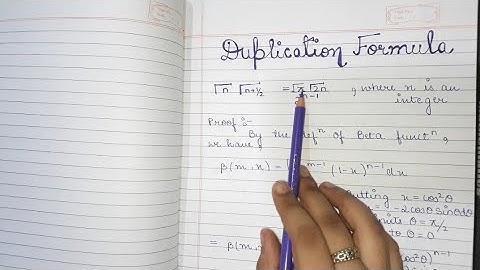 Duplication Formula
Γn Γn+1/2 = √π Γ2n , where n is an
n-1 integer
Proof :-
By the defⁿ of Beta functⁿ,
we have,
β(m,n) = m-1 (1-x)ⁿ⁻¹ dx
Putting x = cos²θ
= -2cosθ sinθdθ
limits θ = π/2
to θ = 0
= β(m, θ)ⁿ⁻¹